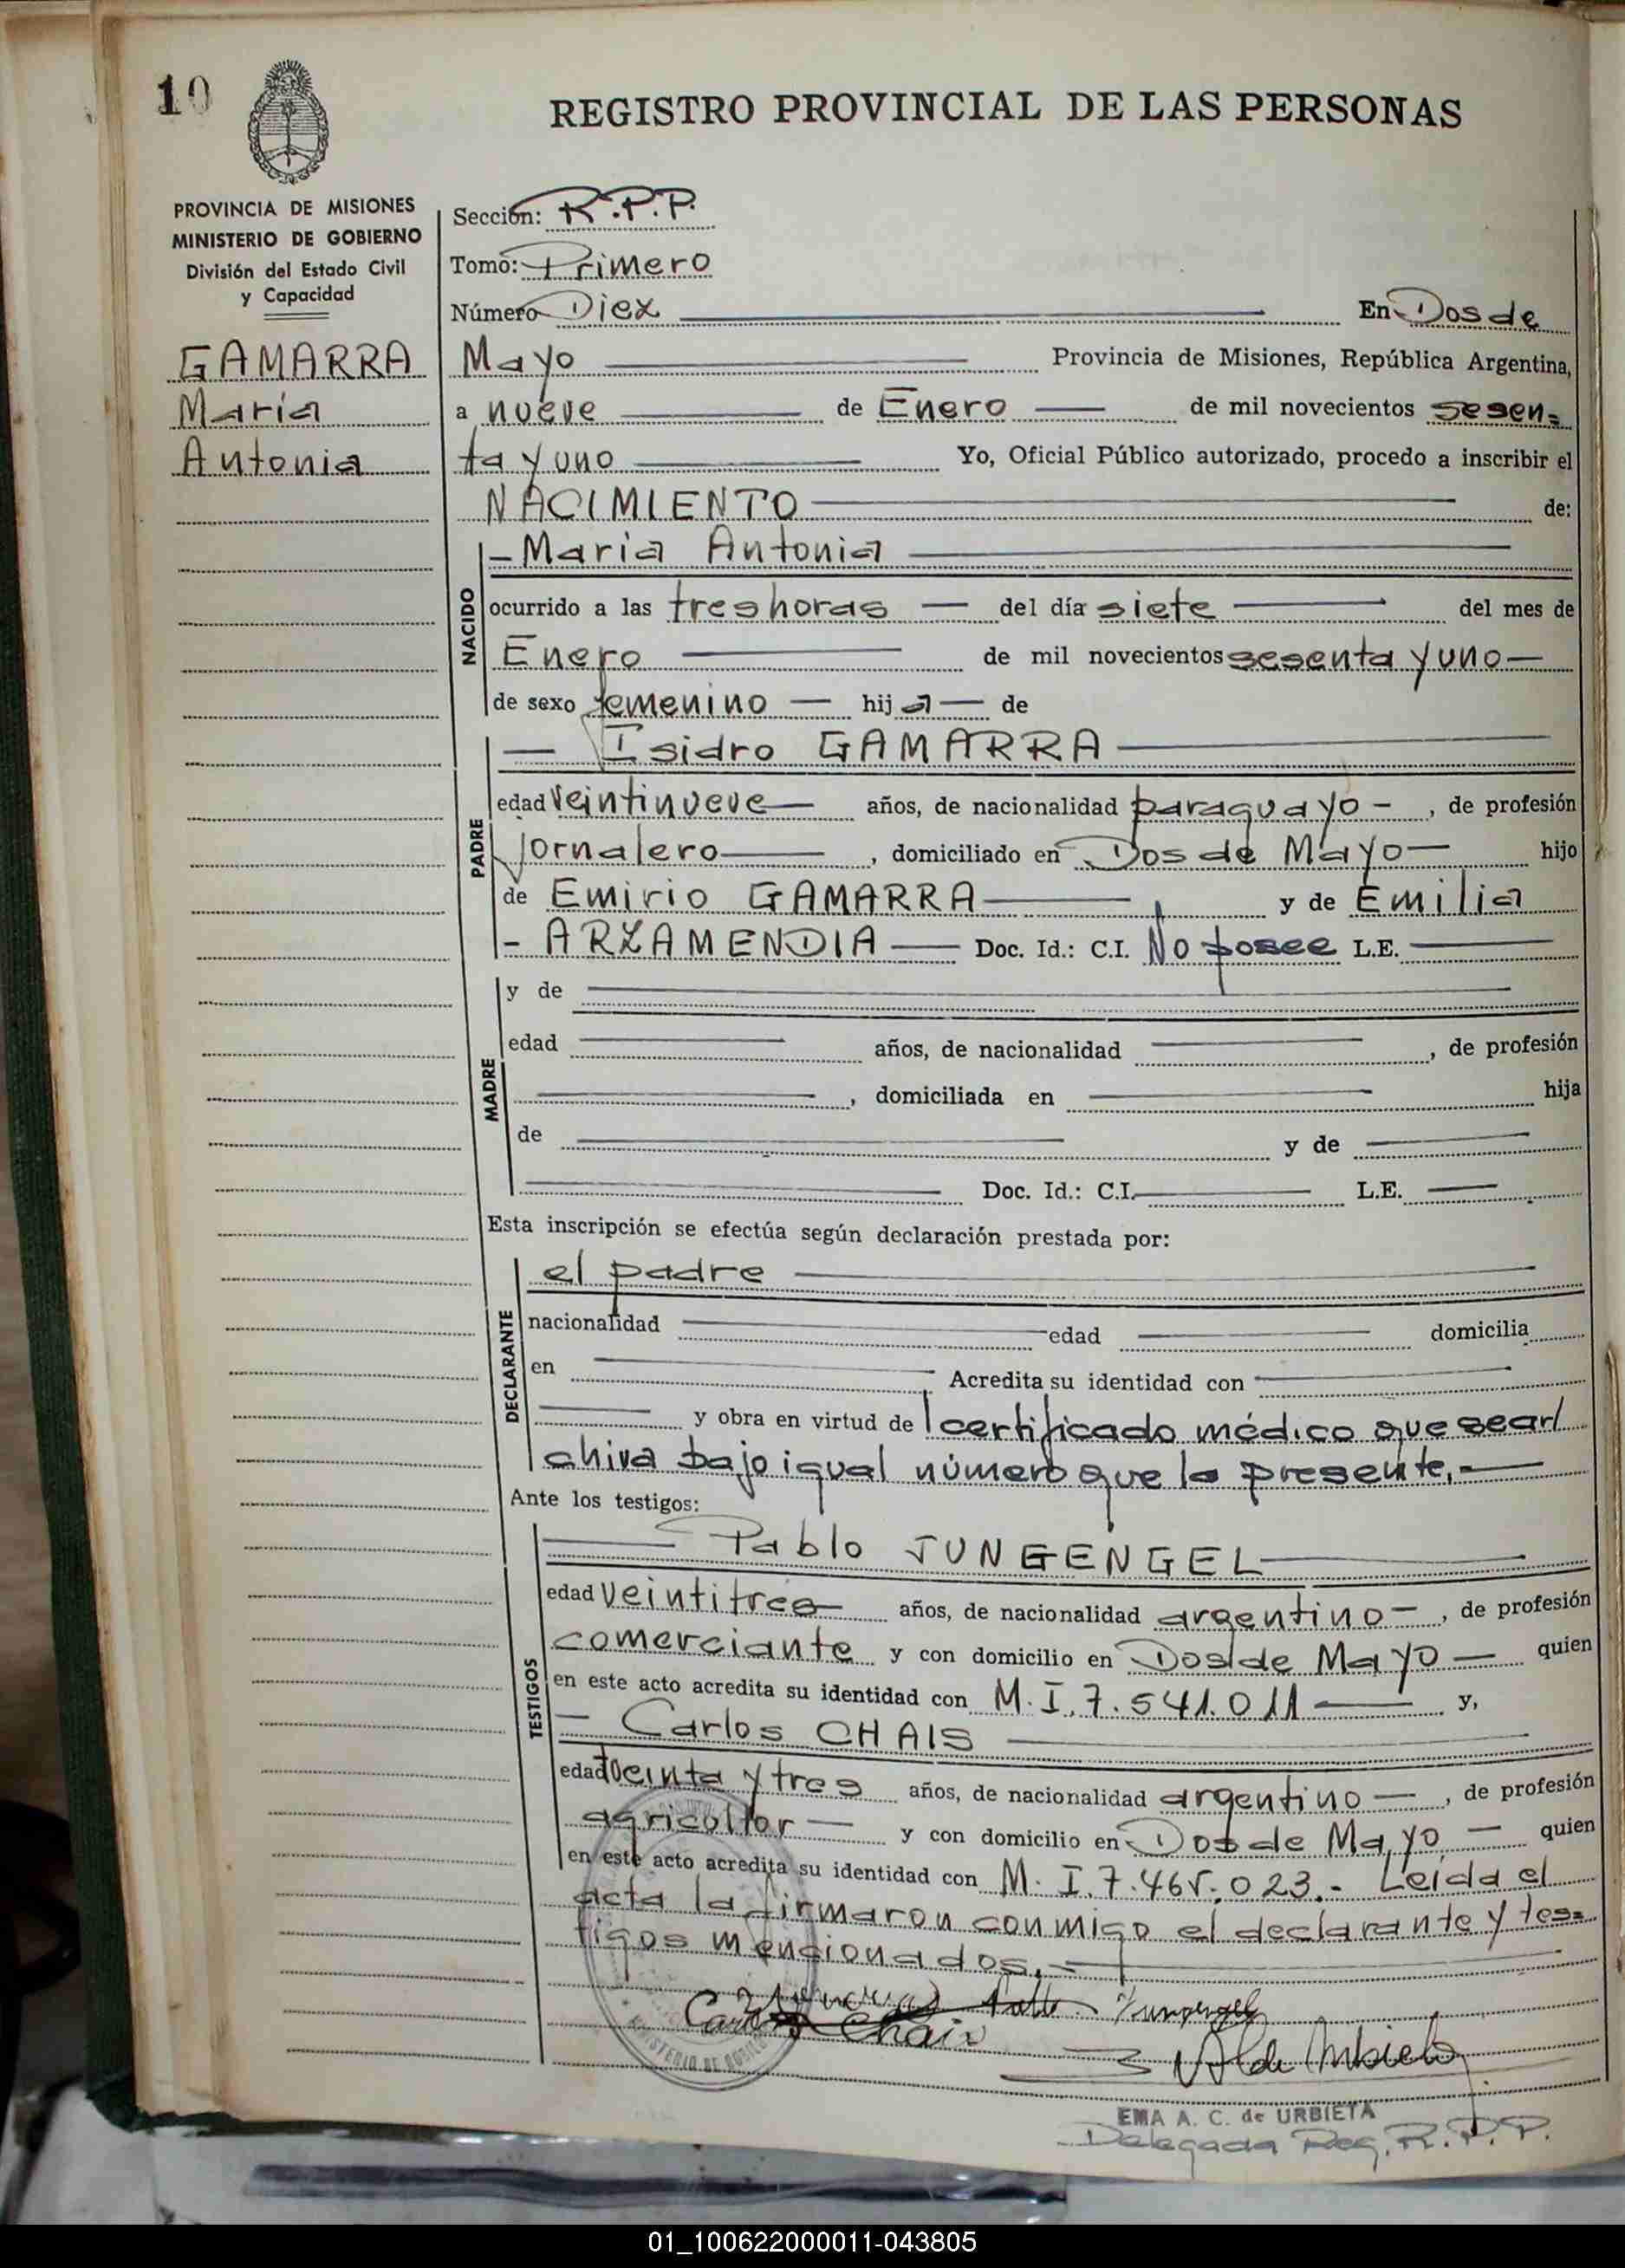 10
REGISTRO PROVINCIAL DE LAS PERSONAS
PROVINCIA DE MISIONES
MINISTERIO DE GOBIERNO
División del Estado Civil
y Capacidad
GAMARRA
María
Antonia
Sección: R.P.P.
Tomo: Primero
Número Diez En Dos de
Mayo Provincia de Misiones, República Argentina,
a nueve de Enero de mil novecientos sesen=
ta y uno Yo, Oficial Público autorizado, procedo a inscribir el
NACIMIENTO de:
NACIDO
- María Antonia
ocurrido a las tres horas del día siete del mes de
Enero de mil novecientos sesenta y uno
de sexo femenino hija de
PADRE
Isidro GAMARRA
edad veintinueve años, de nacionalidad paraguayo, de profesión
jornalero, domiciliado en Dos de Mayo hijo
de Emirio GAMARRA y de Emilia
- ARZAMENDIA Doc. Id.: C.I. No posee L.E.
MADRE
y de
edad años, de nacionalidad , de profesión
, domiciliada en hija
de y de
Doc. Id.: C.I. L.E.
Esta inscripción se efectúa según declaración prestada por:
DECLARANTE
el padre
nacionalidad edad domicilia
en Acredita su identidad con
y obra en virtud de certificado médico que se ar/
chiva bajo igual número que la presente.-
Ante los testigos:
TESTIGOS
Pablo JUNGENGEL
edad veintitres años, de nacionalidad argentino, de profesión
comerciante y con domicilio en Dos de Mayo quien
en este acto acredita su identidad con M.I. 7.541.011 y,
Carlos CHAIS
edad treinta y tres años, de nacionalidad argentino, de profesión
agricultor y con domicilio en Dos de Mayo quien
en este acto acredita su identidad con M.I. 7.465.023.- Leída el
acta la firmaron conmigo el declarante y tes=
tigos mencionados.-
Carlos Chais
EMA A. C. de URBIETA
Delegada Reg. R.P.P.
01_100622000011-043805